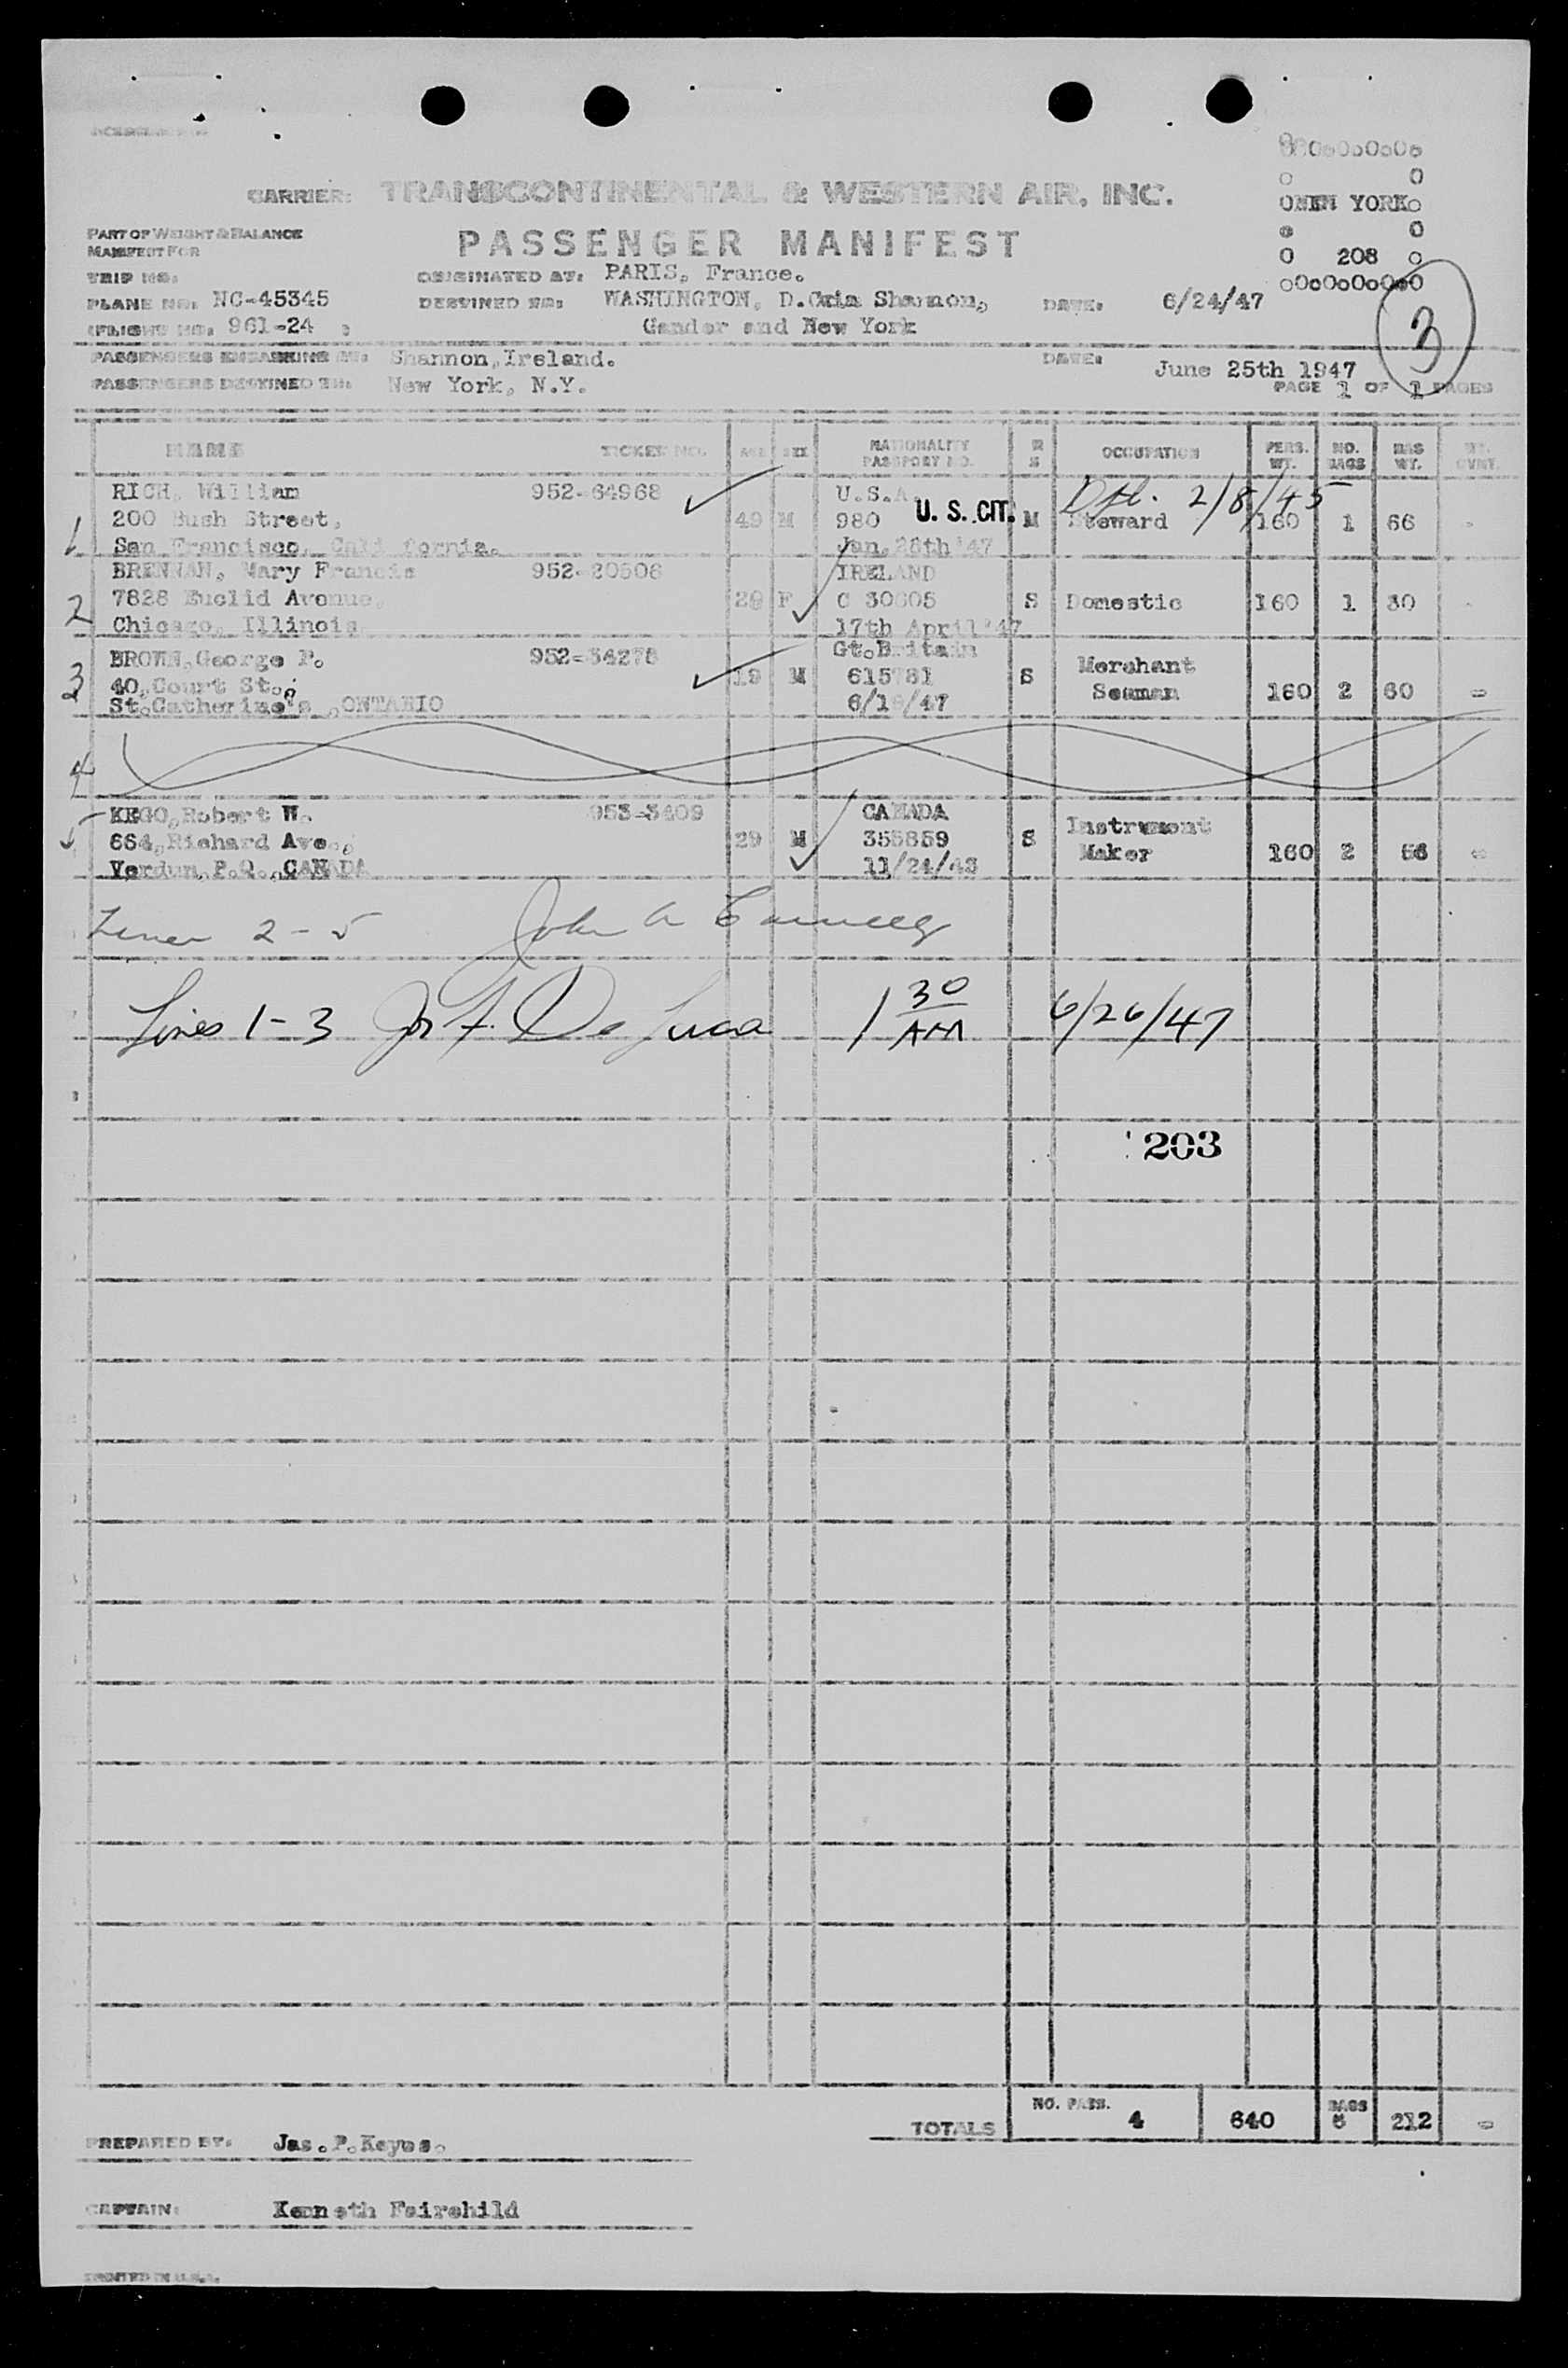 CARRIER: TRANSCONTINENTAL & WESTERN AIR, INC.
NEW YORK
208
PART OF WEIGHT & BALANCE
MANIFEST FOR
PASSENGER MANIFEST
TRIP NO:
ORIGINATED AT: PARIS, France.
PLANE NO: NC-45345
DESTINED TO: WASHINGTON, D.C.via Shannon,
DATE: 6/24/47
FLIGHT NO: 961-24
Gander and New York
3
PASSENGERS EMBARKING AT: Shannon,Ireland.
DATE: June 25th 1947
PASSENGERS DESTINED TO: New York, N.Y.
PAGE 1 OF 1 PAGES
NAME TICKET NO. AGE SEX NATIONALITY PASSPORT NO. OCCUPATION PERS. WT. NO. BAGS BAG WT.
RICH, William 952-64968 U.S.A. 2/8/45
1 200 Bush Street, 49 M 980 U. S. CIT. M Steward 160 1 66 -
San Francisco, California. Jan.28th'47
BRENNAN, Mary Francis 952-20506 IRELAND
2 7828 Euclid Avenue, 29 F C 30605 S Domestic 160 1 30 -
Chicago, Illinois 17th April'47
BROWN,George P. 952-34278 Gt.Britain Merchant
3 40,Court St., 19 M 615781 S Seaman 160 2 60 -
St.Catherine's ,ONTARIO 6/18/47
4
KEGO,Robert W. 953-3409 CANADA Instrument
5 664,Richard Ave., 29 M 355859 S Maker 160 2 56 -
Verdun,P.Q.,CANADA 11/24/43
Lines 2-5 John A
Lines 1-3 Jos F. De Luca 1 30 AM 6/26/47
203
TOTALS NO. PASS. 4 640 BAGS 6 212 -
PREPARED BY: Jas.P.Keyes.
CAPTAIN: Kenneth Fairchild
PRINTED IN U.S.A.